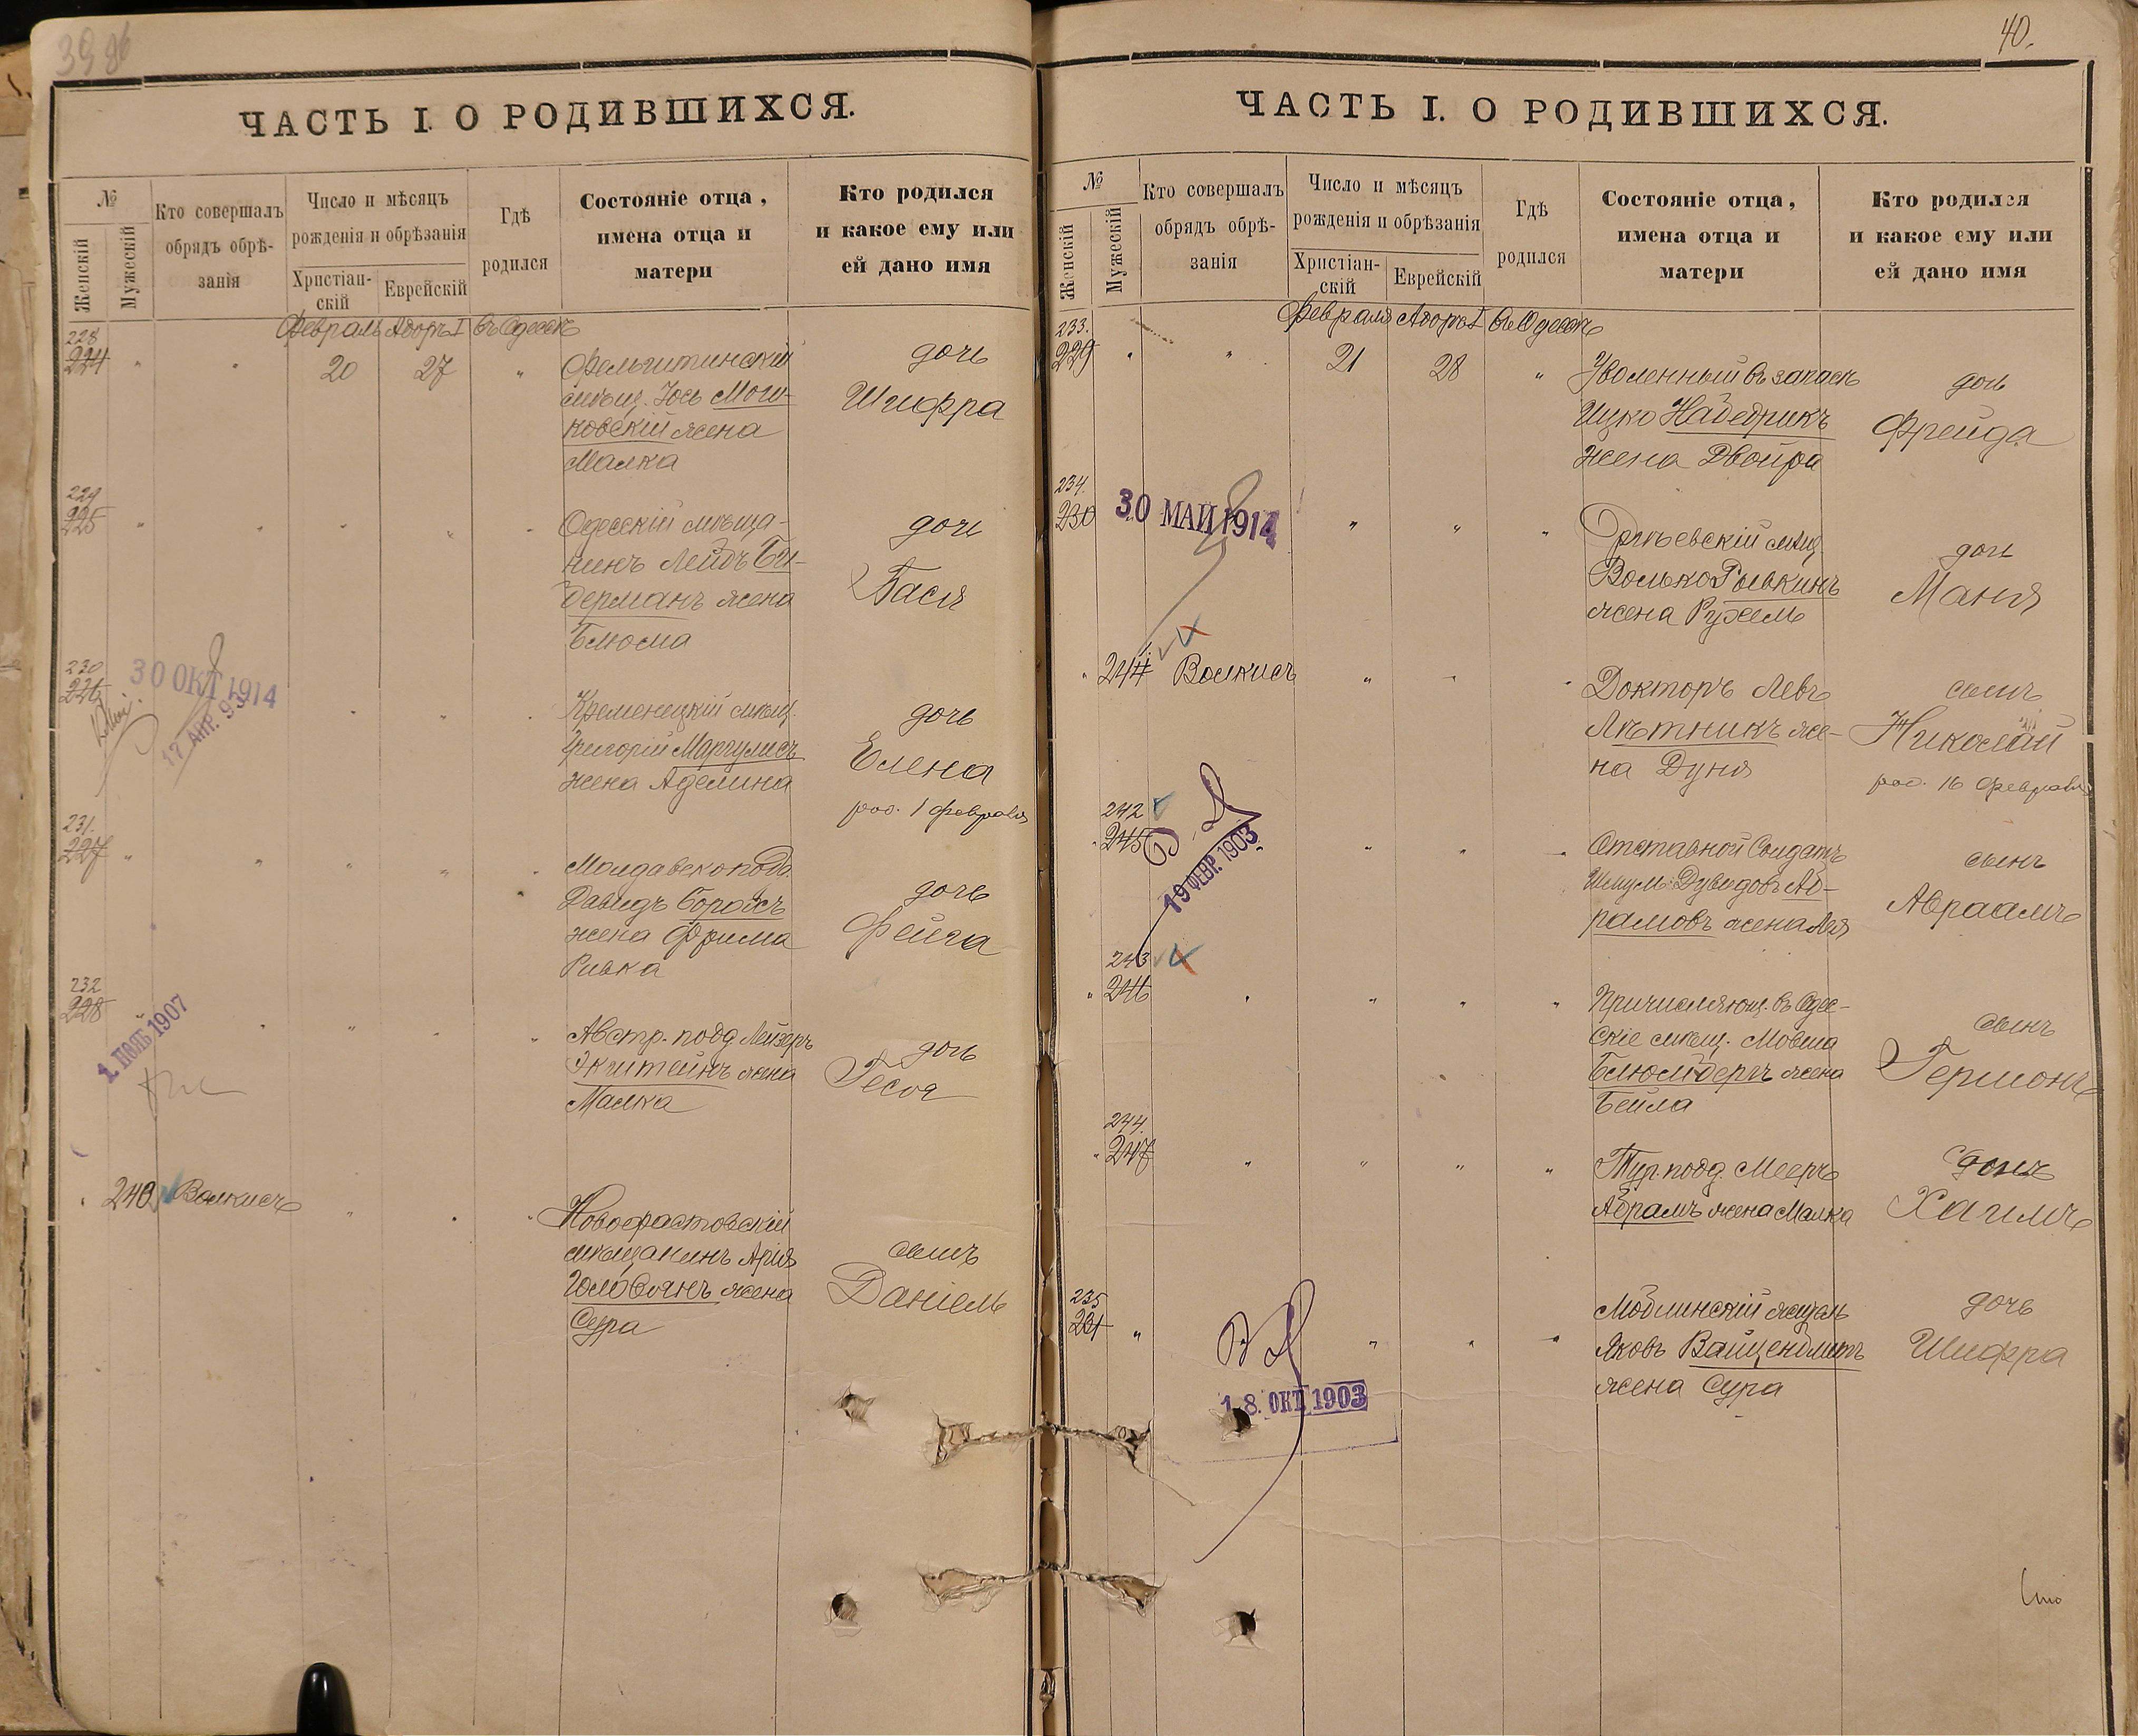 39 об
ЧАСТЬ I. О РОДИВШИХСЯ.
№
Женскій
Мужескій
Кто совершалъ
обрядъ обрѣ-
занія
Число и мѣсяцъ
рожденія и обрѣзанія
Христіан-
скій
Еврейскій
Гдѣ
родился
Состояніе отца,
имена отца и
матери
Кто родился
и какое ему или
ей дано имя
Февраль Адоръ I въ Одессѣ
228
224 " " 20 27 "
Фельштинскій
мѣщ. Іось Мош-
ковскій жена
Малка
дочь
Шифра
229
225
Одесскій мѣща-
нинъ Лейбъ Би-
берманъ жена
Блюма
дочь
Бася
230
226
30 ОКТ 1914
17 АПР. 93
Кременецкій мѣщ.
Григорій Маргулисъ
жена Аделина
дочь
Елена
род. 1 февраля
231.
227
Молдавскопод.
Давидъ
жена Фрима
Ривка
дочь
Фейга
232
228
1907
Австр. подд Лейзеръ
Экштейнъ жена
Малка
дочь
Геся
240 Волкисъ
Новофастовскій
мѣщанинъ Арія
жена
Сура
сынъ
Даніель
40.
ЧАСТЬ I. О РОДИВШИХСЯ.
№
Женскій
Мужескій
Кто совершалъ
обрядъ обрѣ-
занія
Число и мѣсяцъ
рожденія и обрѣзанія
Христіан-
скій
Еврейскій
Гдѣ
родился
Состояніе отца,
имена отца и
матери
Кто родился
и какое ему или
ей дано имя
Февраля Адоръ I въ Одессѣ
233.
229 " " 21 28 "
Уволенный въ запасъ
Ицко Надедрикъ
жена Двойра
дочь
Фрейда
234.
230
30 МАЙ 1914
мѣщ.
Волько Рывкинъ
жена Рухель
дочь
Маня
Волкисъ
Докторъ Левъ
Лѣтникъ же-
на Дуня
сынъ
Николай
род. 16 Февраля
242
245
19 ФЕВР. 1903
Отставной Солдатъ
Шмулъ Дувидовъ Аб-
рамовъ жена Лея
сынъ
Авраамъ
243
246
Причисляющ. въ Одес-
скіе мѣщ. Мовша
Блюмбергъ жена
Бейла
сынъ
Германъ
244.
247
Тур. подд. Мееръ
Абрамъ жена Малка
сынъ
Хаимъ
235
231
18. ОКТ. 1903
Яковъ
жена Сура
дочь
Шифра